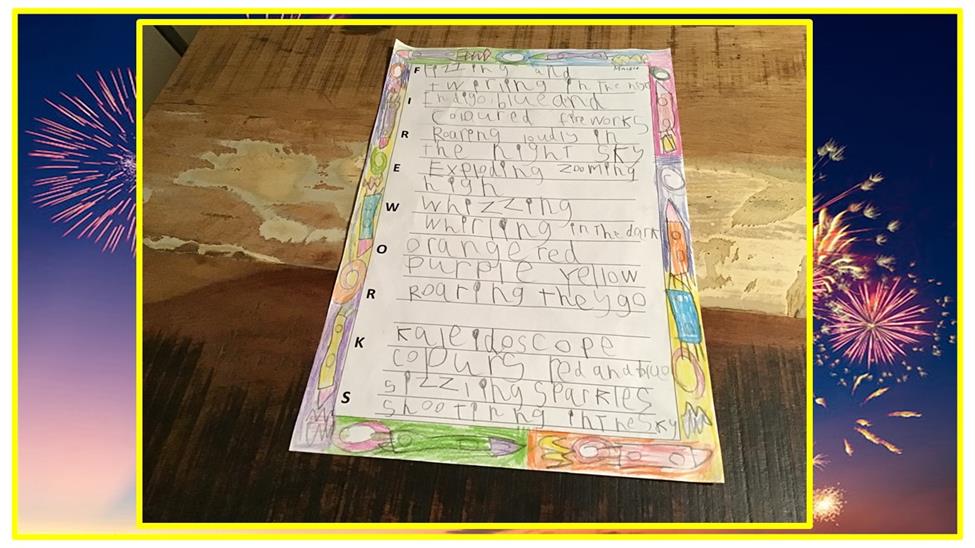 F Fizzing and
twirling in the nigh
I Indigo, blue and
coloured fireworks
R Roaring loudly in
the night sky
E Exploding zooming
high
W Whizzing
whirling in the dark
O orange red
purple yellow
R Roaring they go
K Kaleidoscope
colours red and blue
S Sizzling sparkles
shooting in the sky